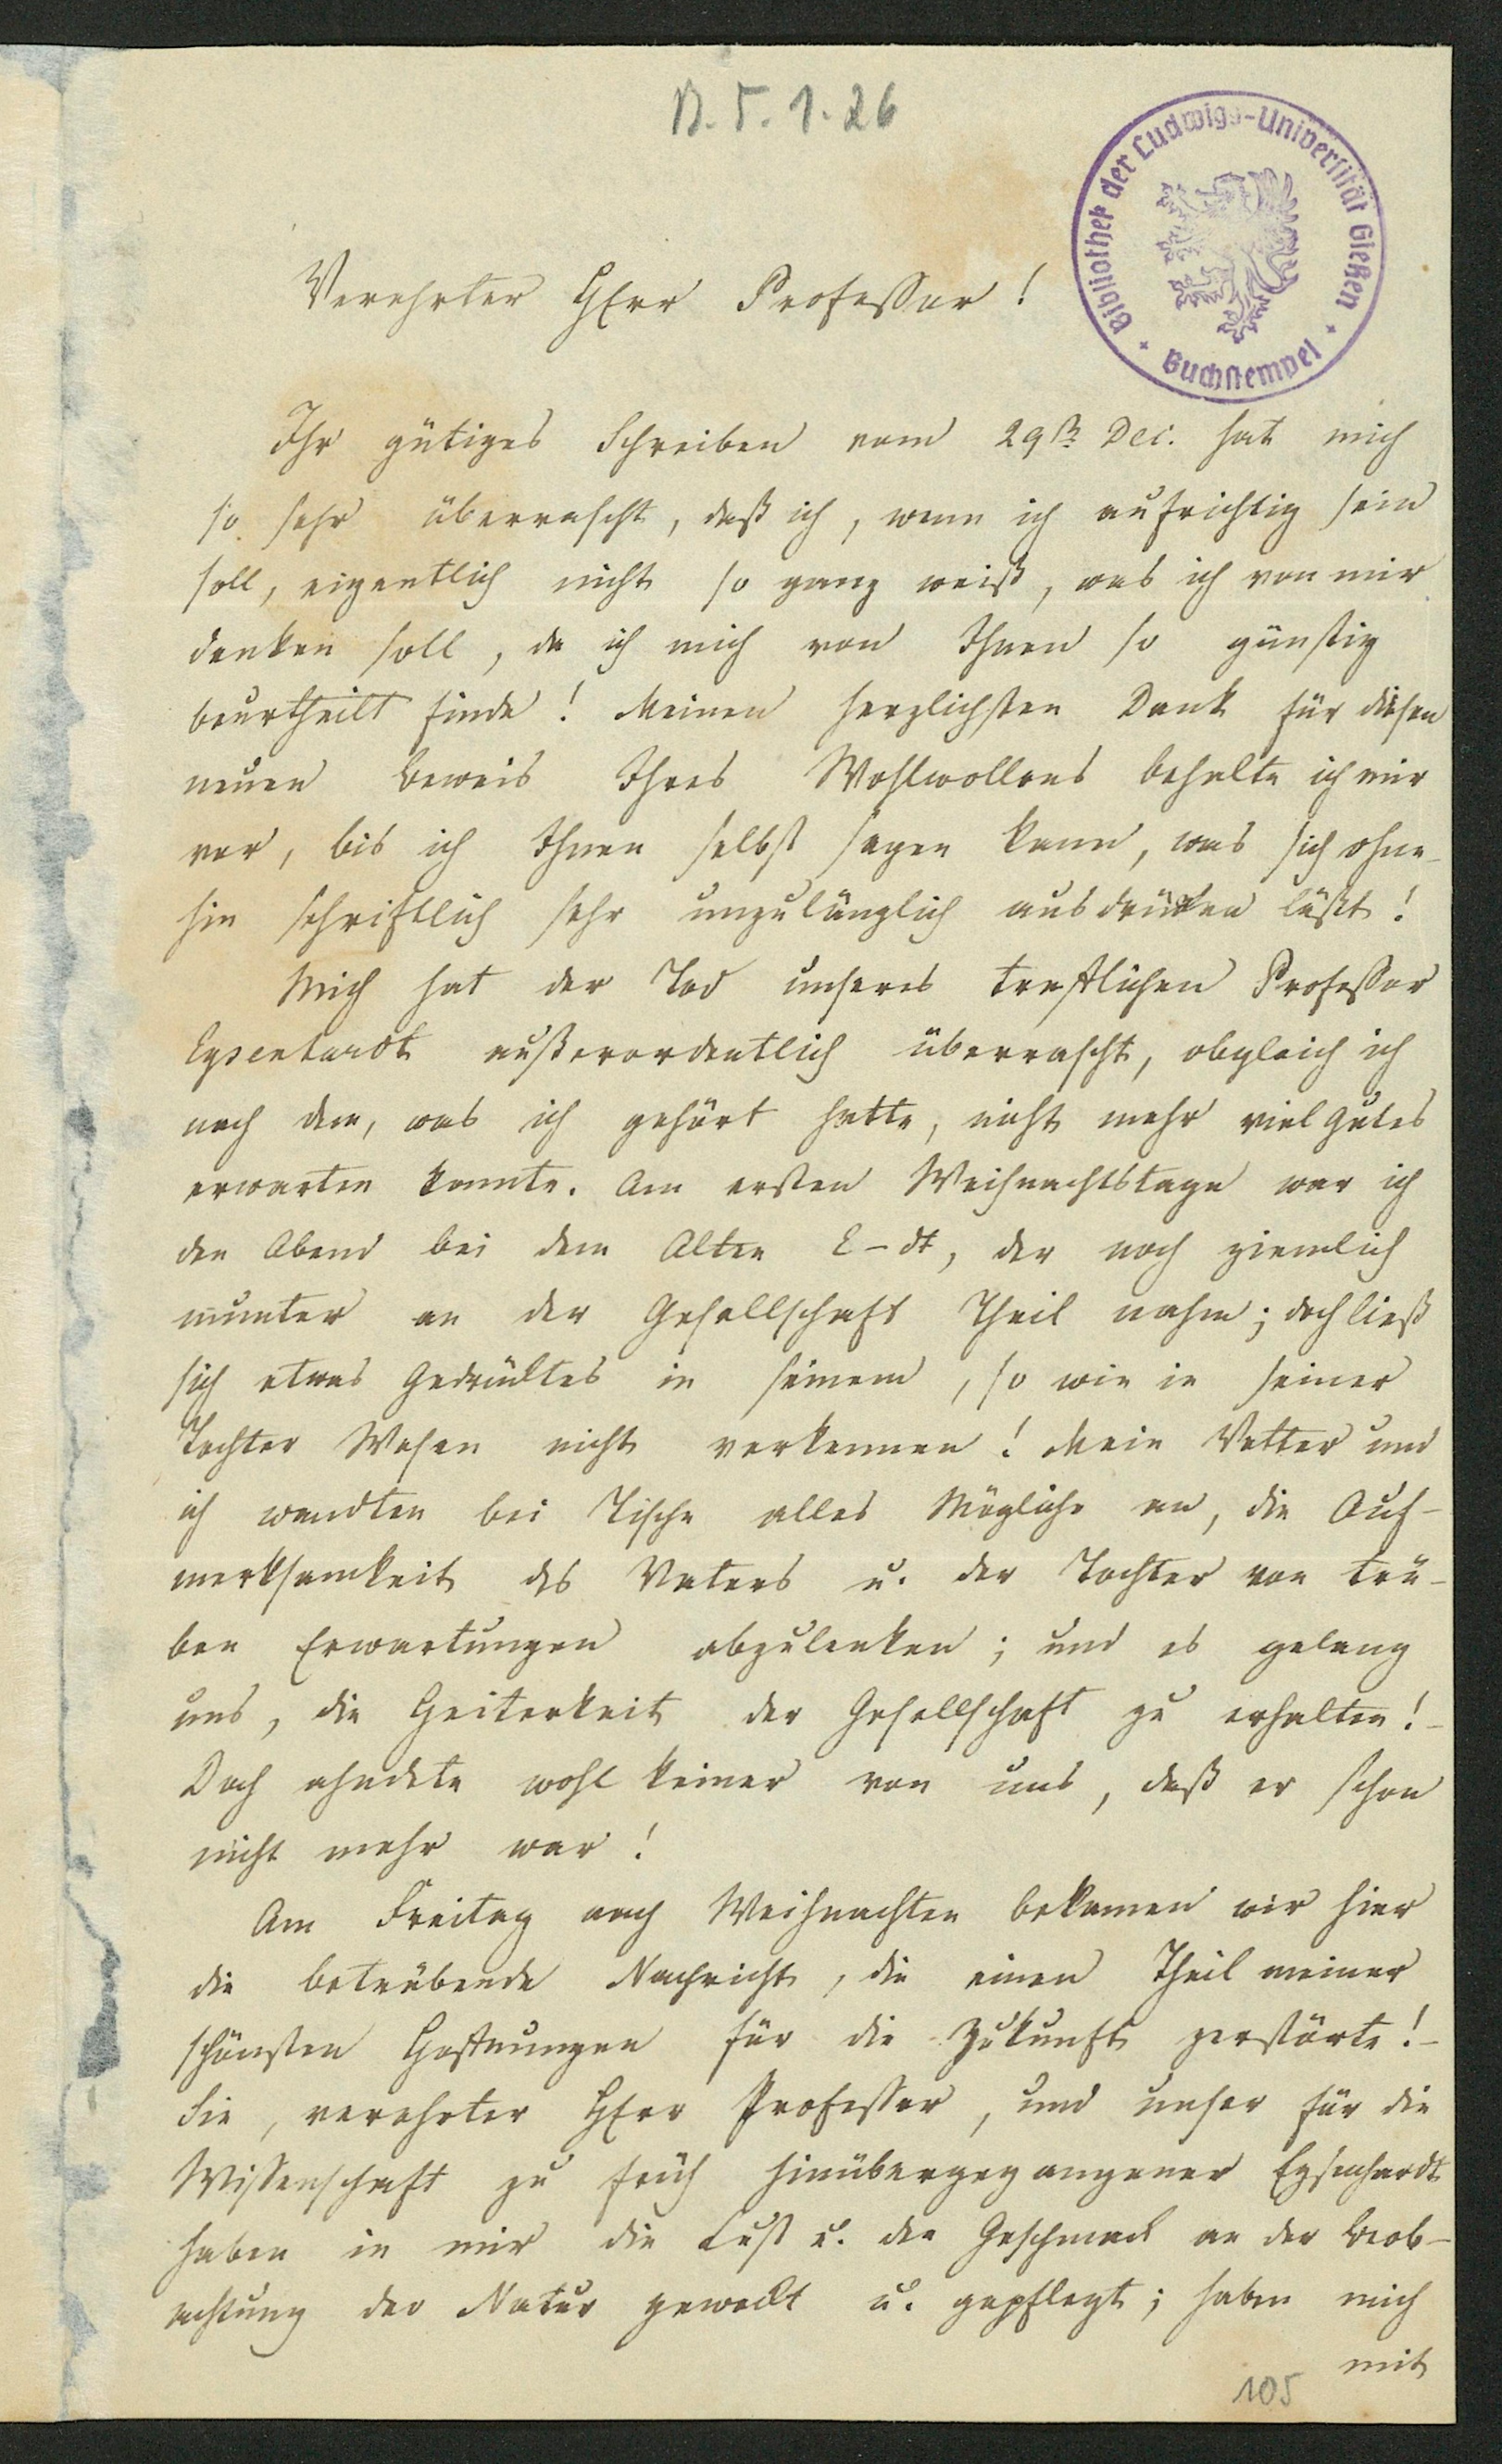 D. 5. 1. 26
Bibliothek der Ludwigs-Universität Gießen
Buchstempel
Verehrter HErr Professor!
Ihr gütiges Schreiben vom 29sten Dec. hat mich
so sehr überrascht, daß ich, wenn ich aufrichtig sein
soll, eigentlich nicht so ganz weiß, was ich von mir
denken soll, da ich mich von Ihnen so günstig
beurtheilt finde! Meinen herzlichsten Dank für diesen
neuen Beweis Ihres Wohlwollens behalte ich mir
vor, bis ich Ihnen selbst sagen kann, was sich ohne-
hin schriftlich sehr unzulänglich ausdrücken läßt!
Mich hat der Tod unseres trefflichen Professor
Eysenhardt außerordentlich überrascht, obgleich ich
nach dem, was ich gehört hatte, nicht mehr viel Gutes
erwarten konnte. Am ersten Weihnachtstage war ich
den Abend bei dem Alten E-dt, der noch ziemlich
munter an der Gesellschaft Theil nahm; doch ließ
sich etwas Gedrücktes in seinem, so wie in seiner
Tochter Wesen nicht verkennen! Mein Vetter und
ich wandten bei Tische alles Mögliche an, die Auf-
merksamkeit des Vaters u. der Tochter von trü-
ben Erwartungen abzulenken; und es gelang
uns, die Heiterkeit der Gesellschaft zu erhalten!-
Doch ahndete wohl keiner von uns, daß er schon
nicht mehr war!
Am Freitag nach Weihnachten bekamen wir hier
die betrübende Nachricht, die einen Theil meiner
schönsten Hoffnungen für die Zukunft zerstörte!-
Sie, verehrter HErr Professor, und unser für die
Wissenschaft zu früh hinübergegangener Eysenhardt
haben in mir die Lust u. den Geschmack an der Beob-
achtung der Natur geweckt u. gepflegt; haben mich
mit
105